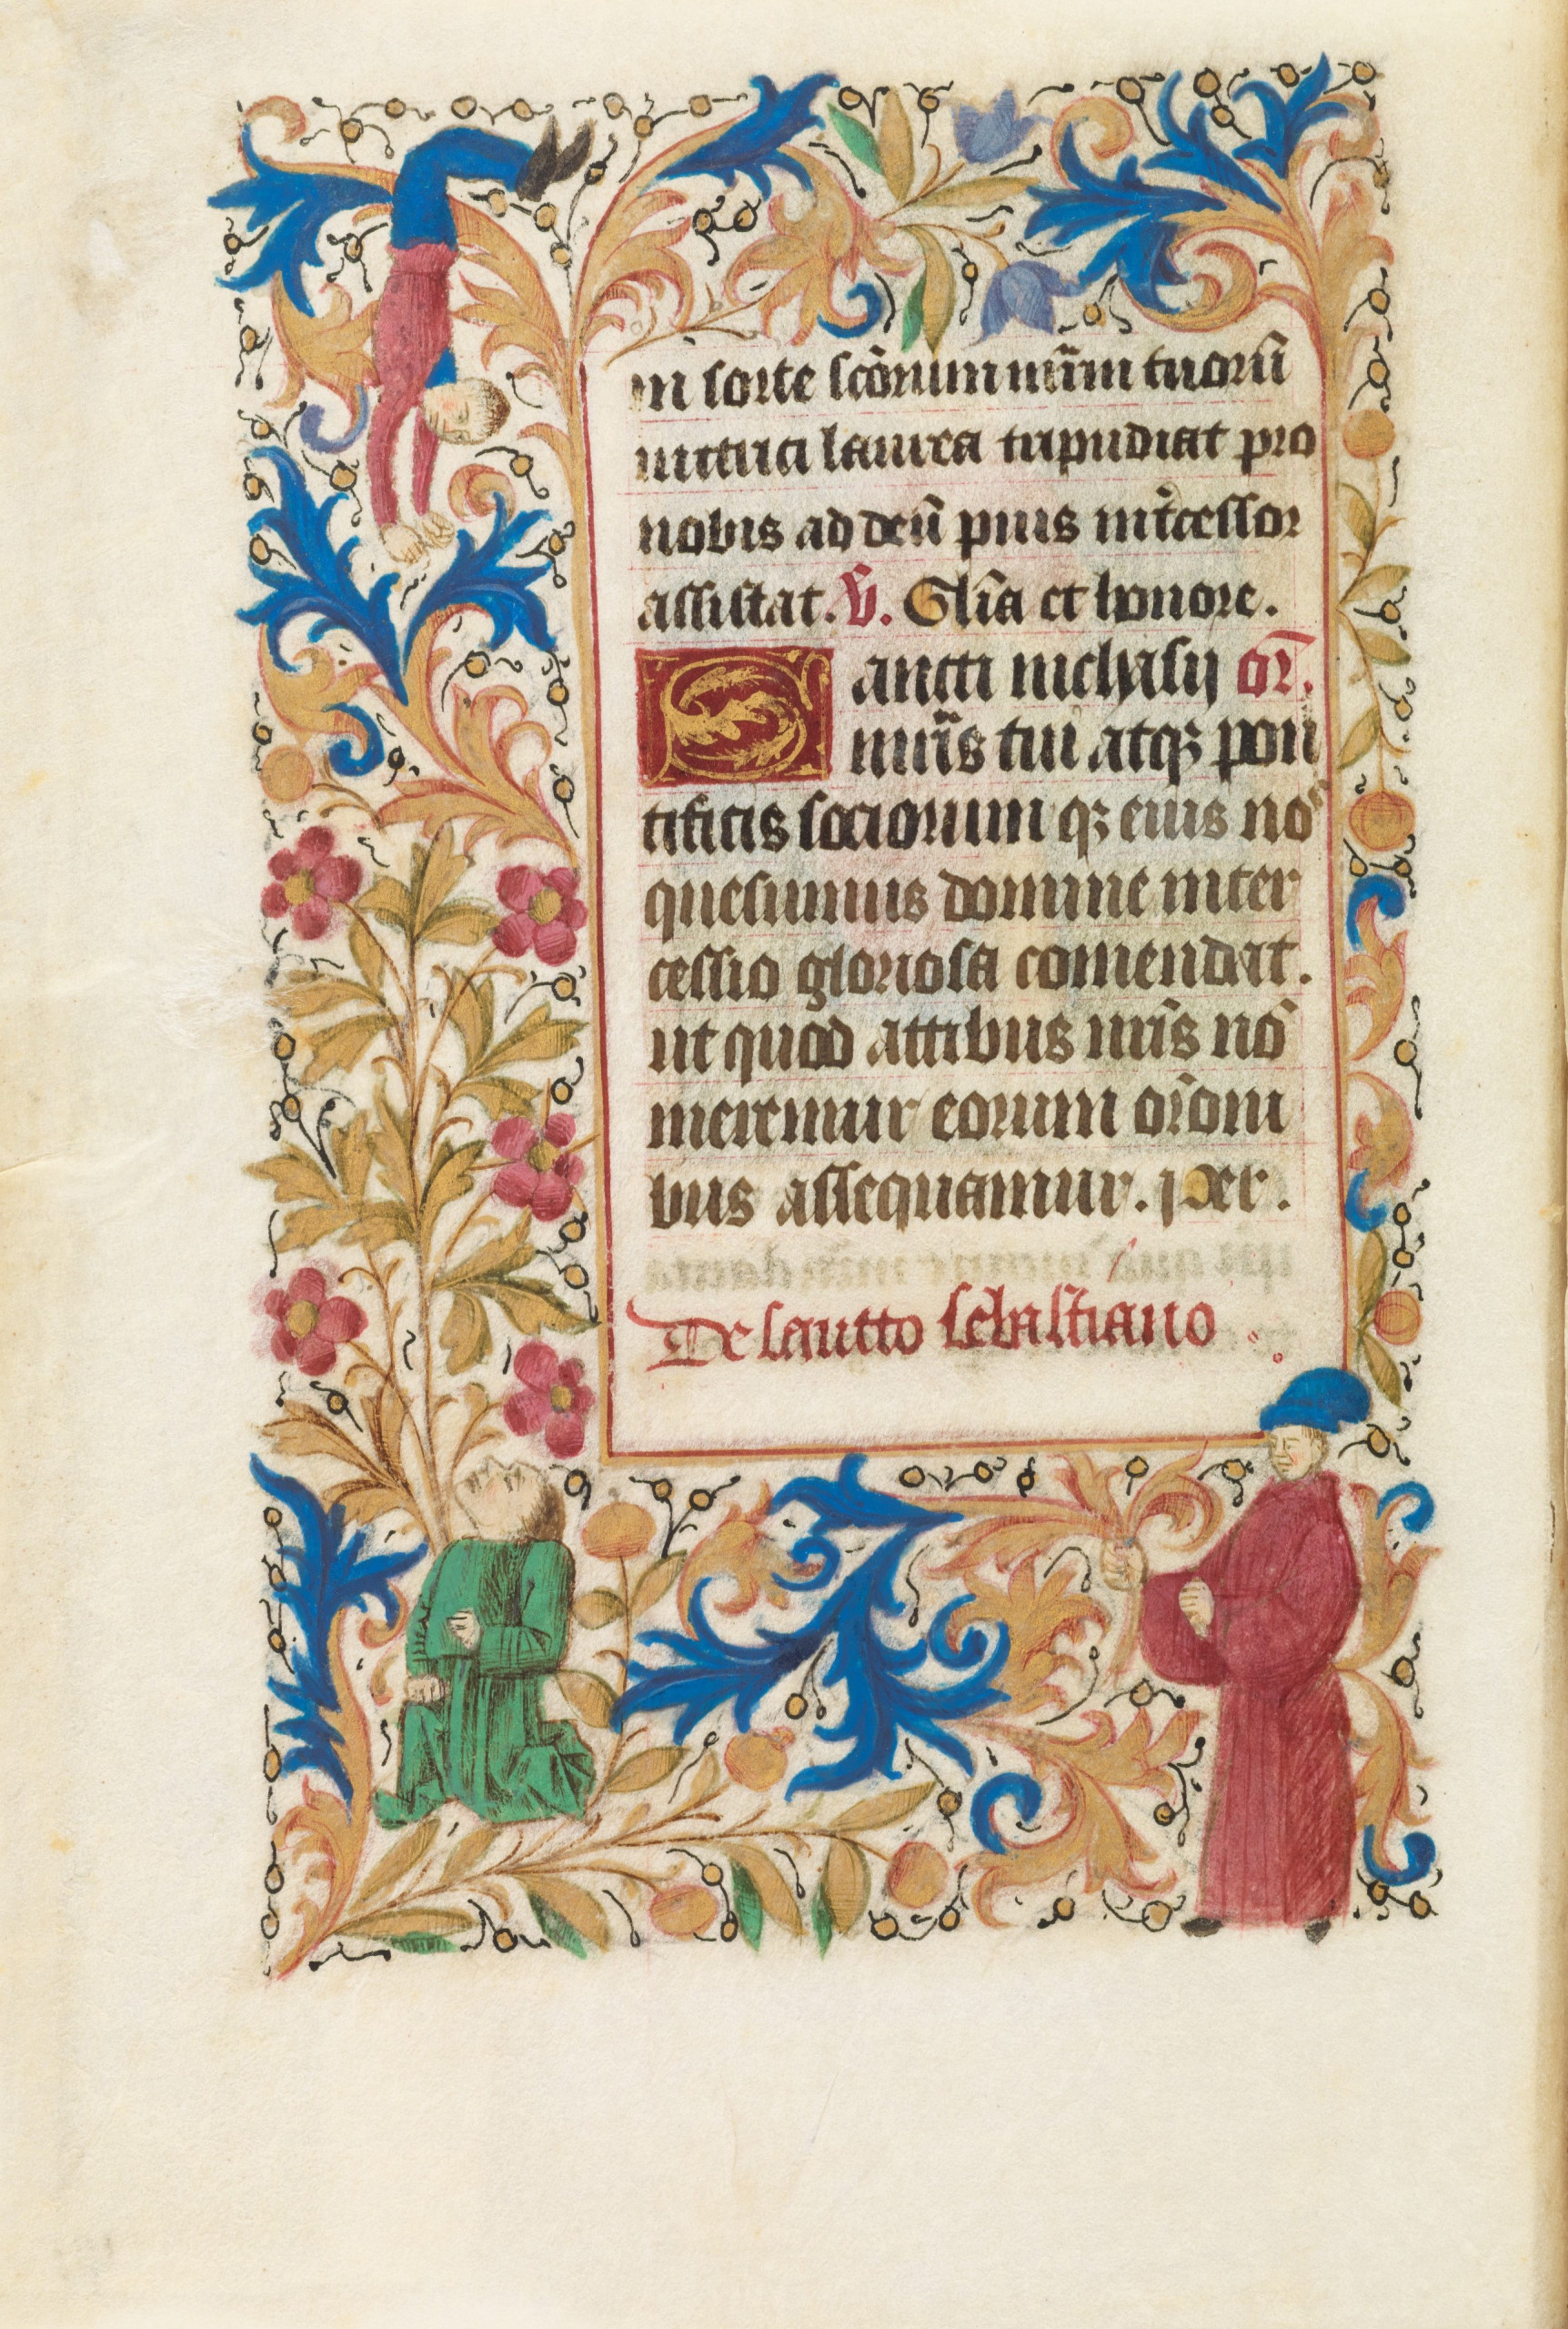 in sorte sc̄orum mr̄m tuorū
inuicti laurea tripudiat pro
nobis ad deū pius int̄cessor
assistat. V̄. Glīa et honore.
Sancti nichasij or̄.
mr̄is tui atqꝫ pon
tificis sociorum qꝫ eius nos
quesumus domine inter
cessio gloriosa comendat.
ut quod actibus nr̄is nō
meremur eorum or̄oni
bus assequamur. per.
De sancto sebastiano